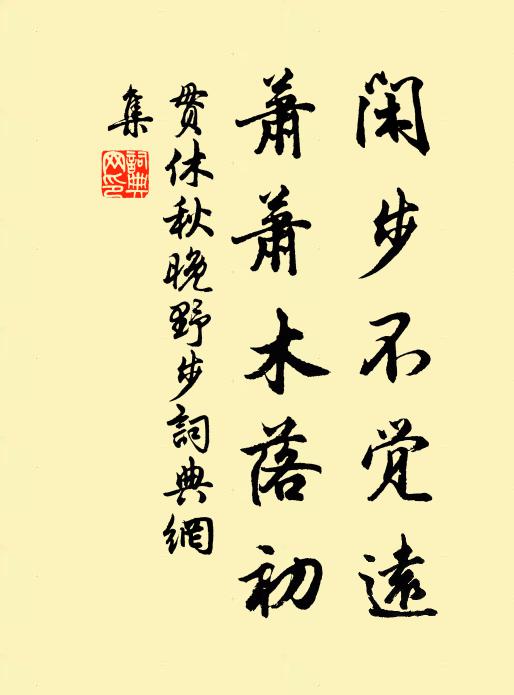 闲步不觉遠
萧萧木落初
贯休秋晚野步詞典網
集
詞典
网印